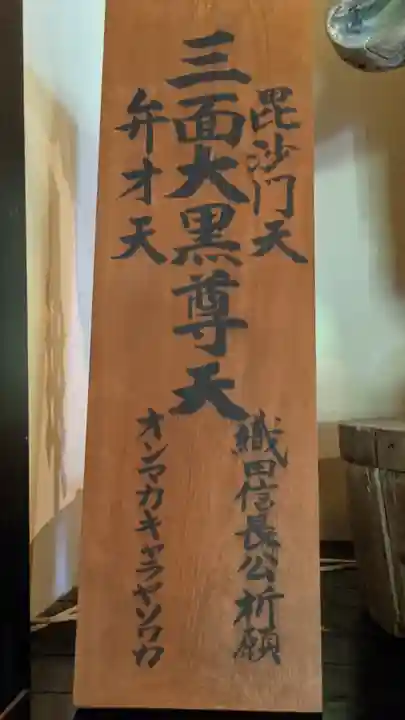 毘沙門天
三面大黒尊天
弁才天
織田信長公祈願
オンマカキャラヤソワカ